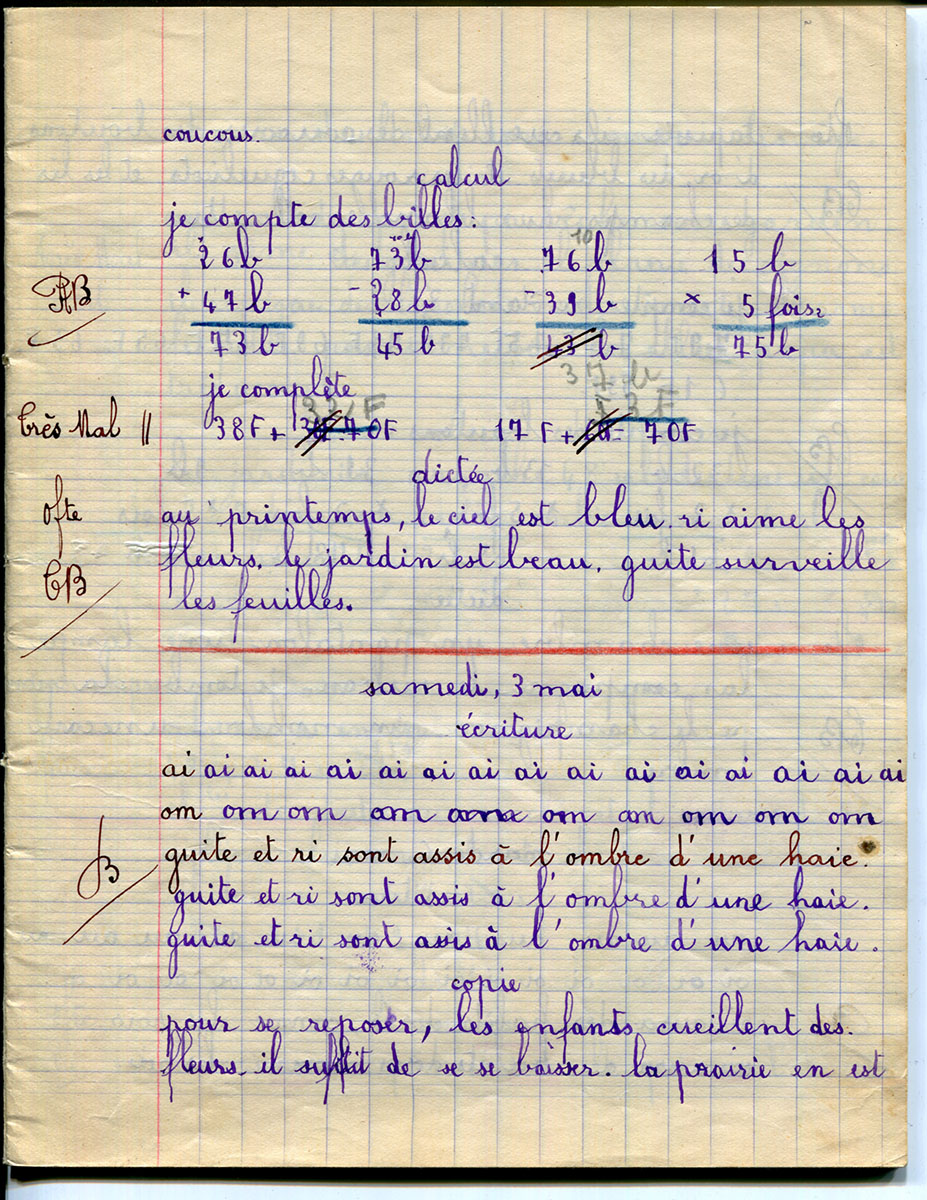 coucous.
calcul
je compte des billes:
10
26b 73b 76b 15 b
+ 47b - 28b - 39b × 5 fois
73b 45b 43 b 75b
37 b
je complète
Très Mal 38F + = 70F 17 F + = 70F
dictée
au printemps, le ciel est bleu. ri aime les
fleurs. le jardin est beau. guite surveille
TB les feuilles.
samedi, 3 mai
écriture
ai ai ai ai ai ai ai ai ai ai ai ai ai ai ai ai
om om om om om om om om om om
guite et ri sont assis à l'ombre d'une haie.
B guite et ri sont assis à l'ombre d'une haie.
guite et ri sont assis à l'ombre d'une haie.
copie
pour se reposer, les enfants cueillent des
fleurs. il suffit de se se baisser. la prairie en est